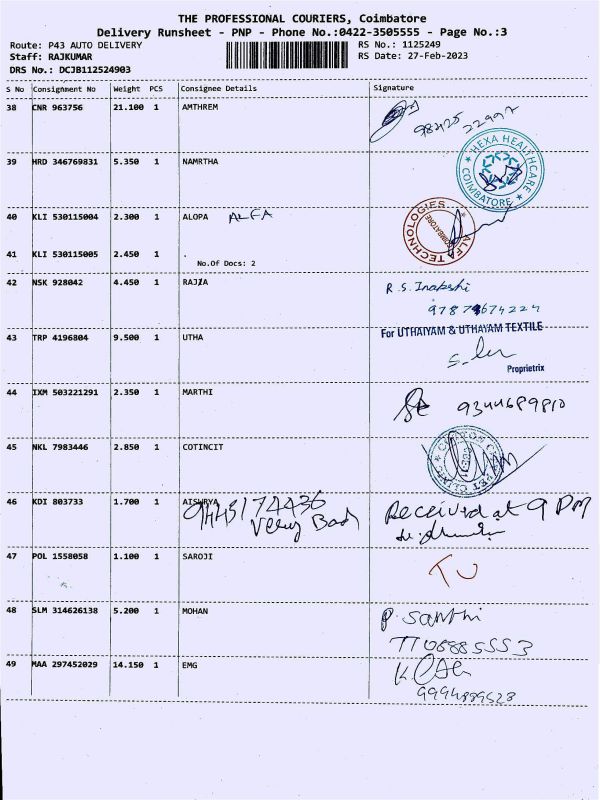 THE PROFESSIONAL COURIERS, Coimbatore
Delivery Runsheet - PNP - Phone No.:0422-3505555 - Page No.:3
Route: P43 AUTO DELIVERY
RS No.: 1125249
Staff: RAJKUMAR
RS Date: 27-Feb-2023
DRS No.: DCJB112524903
S No Consignment No Weight PCS Consignee Details Signature
38 CNR 963756 21.100 1 AMTHREM
98425 22997
39 HRD 346769831 5.350 1 NAMRTHA
HEXA HEALTHCARE COIMBATORE
40 KLI 530115004 2.300 1 ALOPA ALFA
ALFA TECHNOLOGIES COIMBATORE
41 KLI 530115005 2.450 1 .
No.Of Docs: 2
42 NSK 928042 4.450 1 RAJIA
R.S.
43 TRP 4196804 9.500 1 UTHA
For UTHAIYAM & UTHAYAM TEXTILE
Proprietrix
44 IXM 503221291 2.350 1 MARTHI
9344689810
45 NKL 7983446 2.850 1 COTINCIT
46 KDI 803733 1.700 1 AISWRYA
9445174436
Very Bad
Received at 9 PM
47 POL 1558058 1.100 1 SAROJI
48 SLM 314626138 5.200 1 MOHAN
P. Santhi
7708885553
49 MAA 297452029 14.150 1 EMG